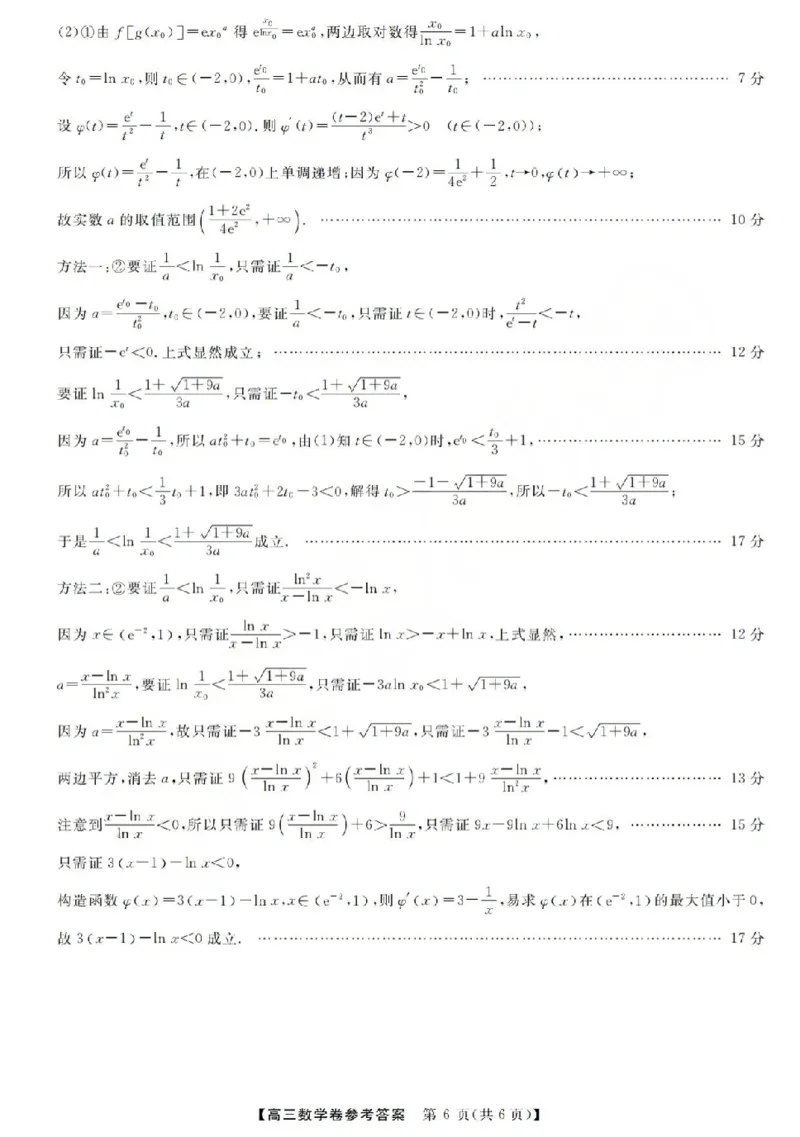 (2)①由 f[g(x₀)]=ex₀ᵃ 得 e^(x₀/ln x₀)=ex₀ᵃ,两边取对数得 x₀/ln x₀=1+aln x₀,
令 t₀=ln x₀,则 t₀∈(-2,0), e^(t₀)/t₀=1+at₀,从而有 a=e^(t₀)/t₀²-1/t₀; ………………………………………… 7 分
设 φ(t)=eᵗ/t²-1/t,t∈(-2,0).则 φ′(t)=((t-2)eᵗ+t)/t³>0 (t∈(-2,0));
所以 φ(t)=eᵗ/t²-1/t,在(-2,0)上单调递增;因为 φ(-2)=1/(4e²)+1/2,t→0,φ(t)→+∞;
故实数 a 的取值范围((1+2e²)/(4e²),+∞). ………………………………………… 10 分
方法一:②要证 1/a<ln 1/x₀,只需证 1/a<-t₀,
因为 a=(e^(t₀)-t₀)/t₀²,t₀∈(-2,0),要证 1/a<-t₀,只需证 t∈(-2,0)时,t²/(eᵗ-t)<-t,
只需证-eᵗ<0.上式显然成立; ………………………………………… 12 分
要证 ln 1/x₀<(1+√(1+9a))/(3a),只需证-t₀<(1+√(1+9a))/(3a),
因为 a=e^(t₀)/t₀²-1/t₀,所以 at₀²+t₀=e^(t₀),由(1)知 t∈(-2,0)时,e^(t₀)<t₀/3+1, ………………………………………… 15 分
所以 at₀²+t₀<1/3t₀+1,即 3at₀²+2t₀-3<0,解得 t₀>(-1-√(1+9a))/(3a),所以-t₀<(1+√(1+9a))/(3a);
于是 1/a<ln 1/x₀<(1+√(1+9a))/(3a)成立. ………………………………………… 17 分
方法二:②要证 1/a<ln 1/x₀,只需证 ln²x/(x-ln x)<-ln x,
因为 x∈(e⁻²,1),只需证 ln x/(x-ln x)>-1,只需证 ln x>-x+ln x,上式显然, ………………………………………… 12 分
a=(x-ln x)/ln²x,要证 ln 1/x₀<(1+√(1+9a))/(3a),只需证-3aln x₀<1+√(1+9a),
因为 a=(x-ln x)/ln²x,故只需证-3 (x-ln x)/ln x<1+√(1+9a),只需证-3 (x-ln x)/ln x-1<√(1+9a),
两边平方,消去 a,只需证 9((x-ln x)/ln x)²+6((x-ln x)/ln x)+1<1+9 (x-ln x)/ln²x, ………………………………………… 13 分
注意到(x-ln x)/ln x<0,所以只需证 9((x-ln x)/ln x)+6>9/ln x,只需证 9x-9ln x+6ln x<9, ……………… 15 分
只需证 3(x-1)-ln x<0,
构造函数 φ(x)=3(x-1)-ln x,x∈(e⁻²,1),则 φ′(x)=3-1/x,易求 φ(x)在(e⁻²,1)的最大值小于 0,
故 3(x-1)-ln x<0 成立. ………………………………………… 17 分
【高三数学卷参考答案 第 6 页(共 6 页)】